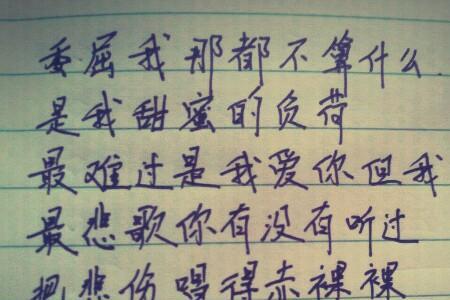 委屈我那都不算什么
是我甜蜜的负荷
最难过是我爱你但我
最悲歌你有没有听过
把悲伤唱得赤裸裸